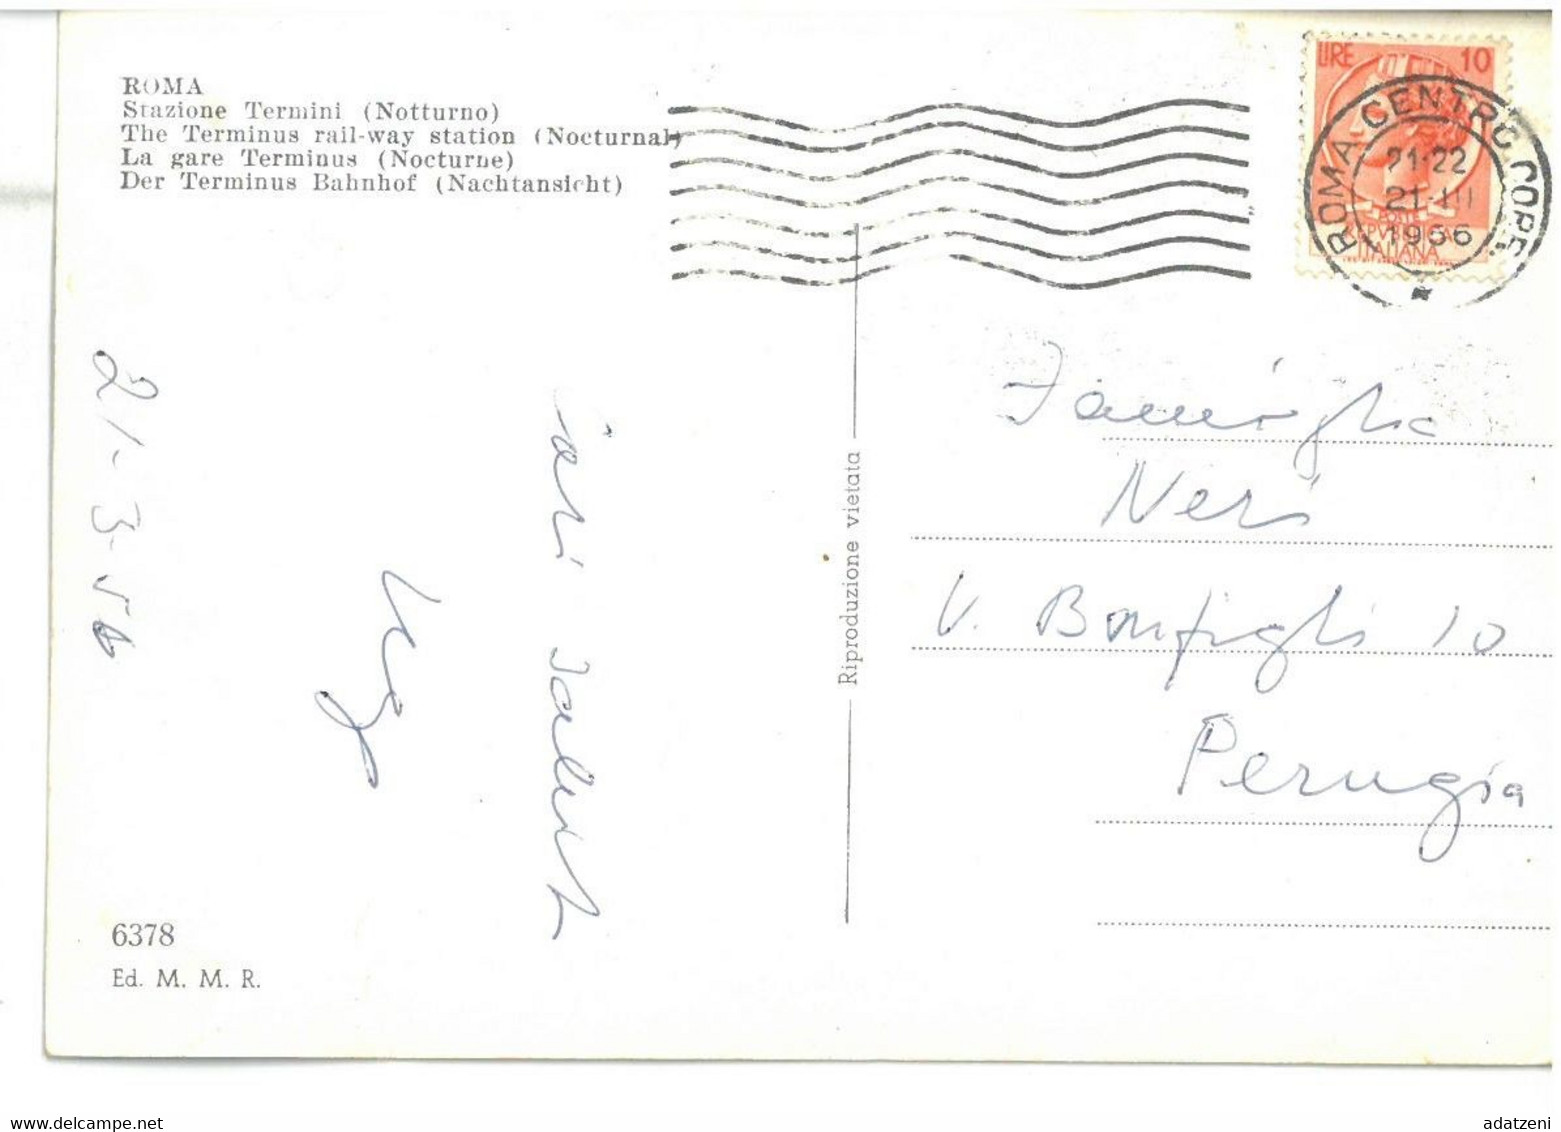 ROMA
Stazione Termini (Notturno)
The Terminus rail-way station (Nocturnal)
La gare Terminus (Nocturne)
Der Terminus Bahnhof (Nachtansicht)
LIRE 10
REPVBBLICA
ITALIANA
ROMA CENTRO CORR
21-22
21 III
1956
21-3-56
cari saluti
Riproduzione vietata
Famiglia
Neri
V. Bonfigli 10
Perugia
6378
Ed. M. M. R.
www.delcampe.net
adatzeni